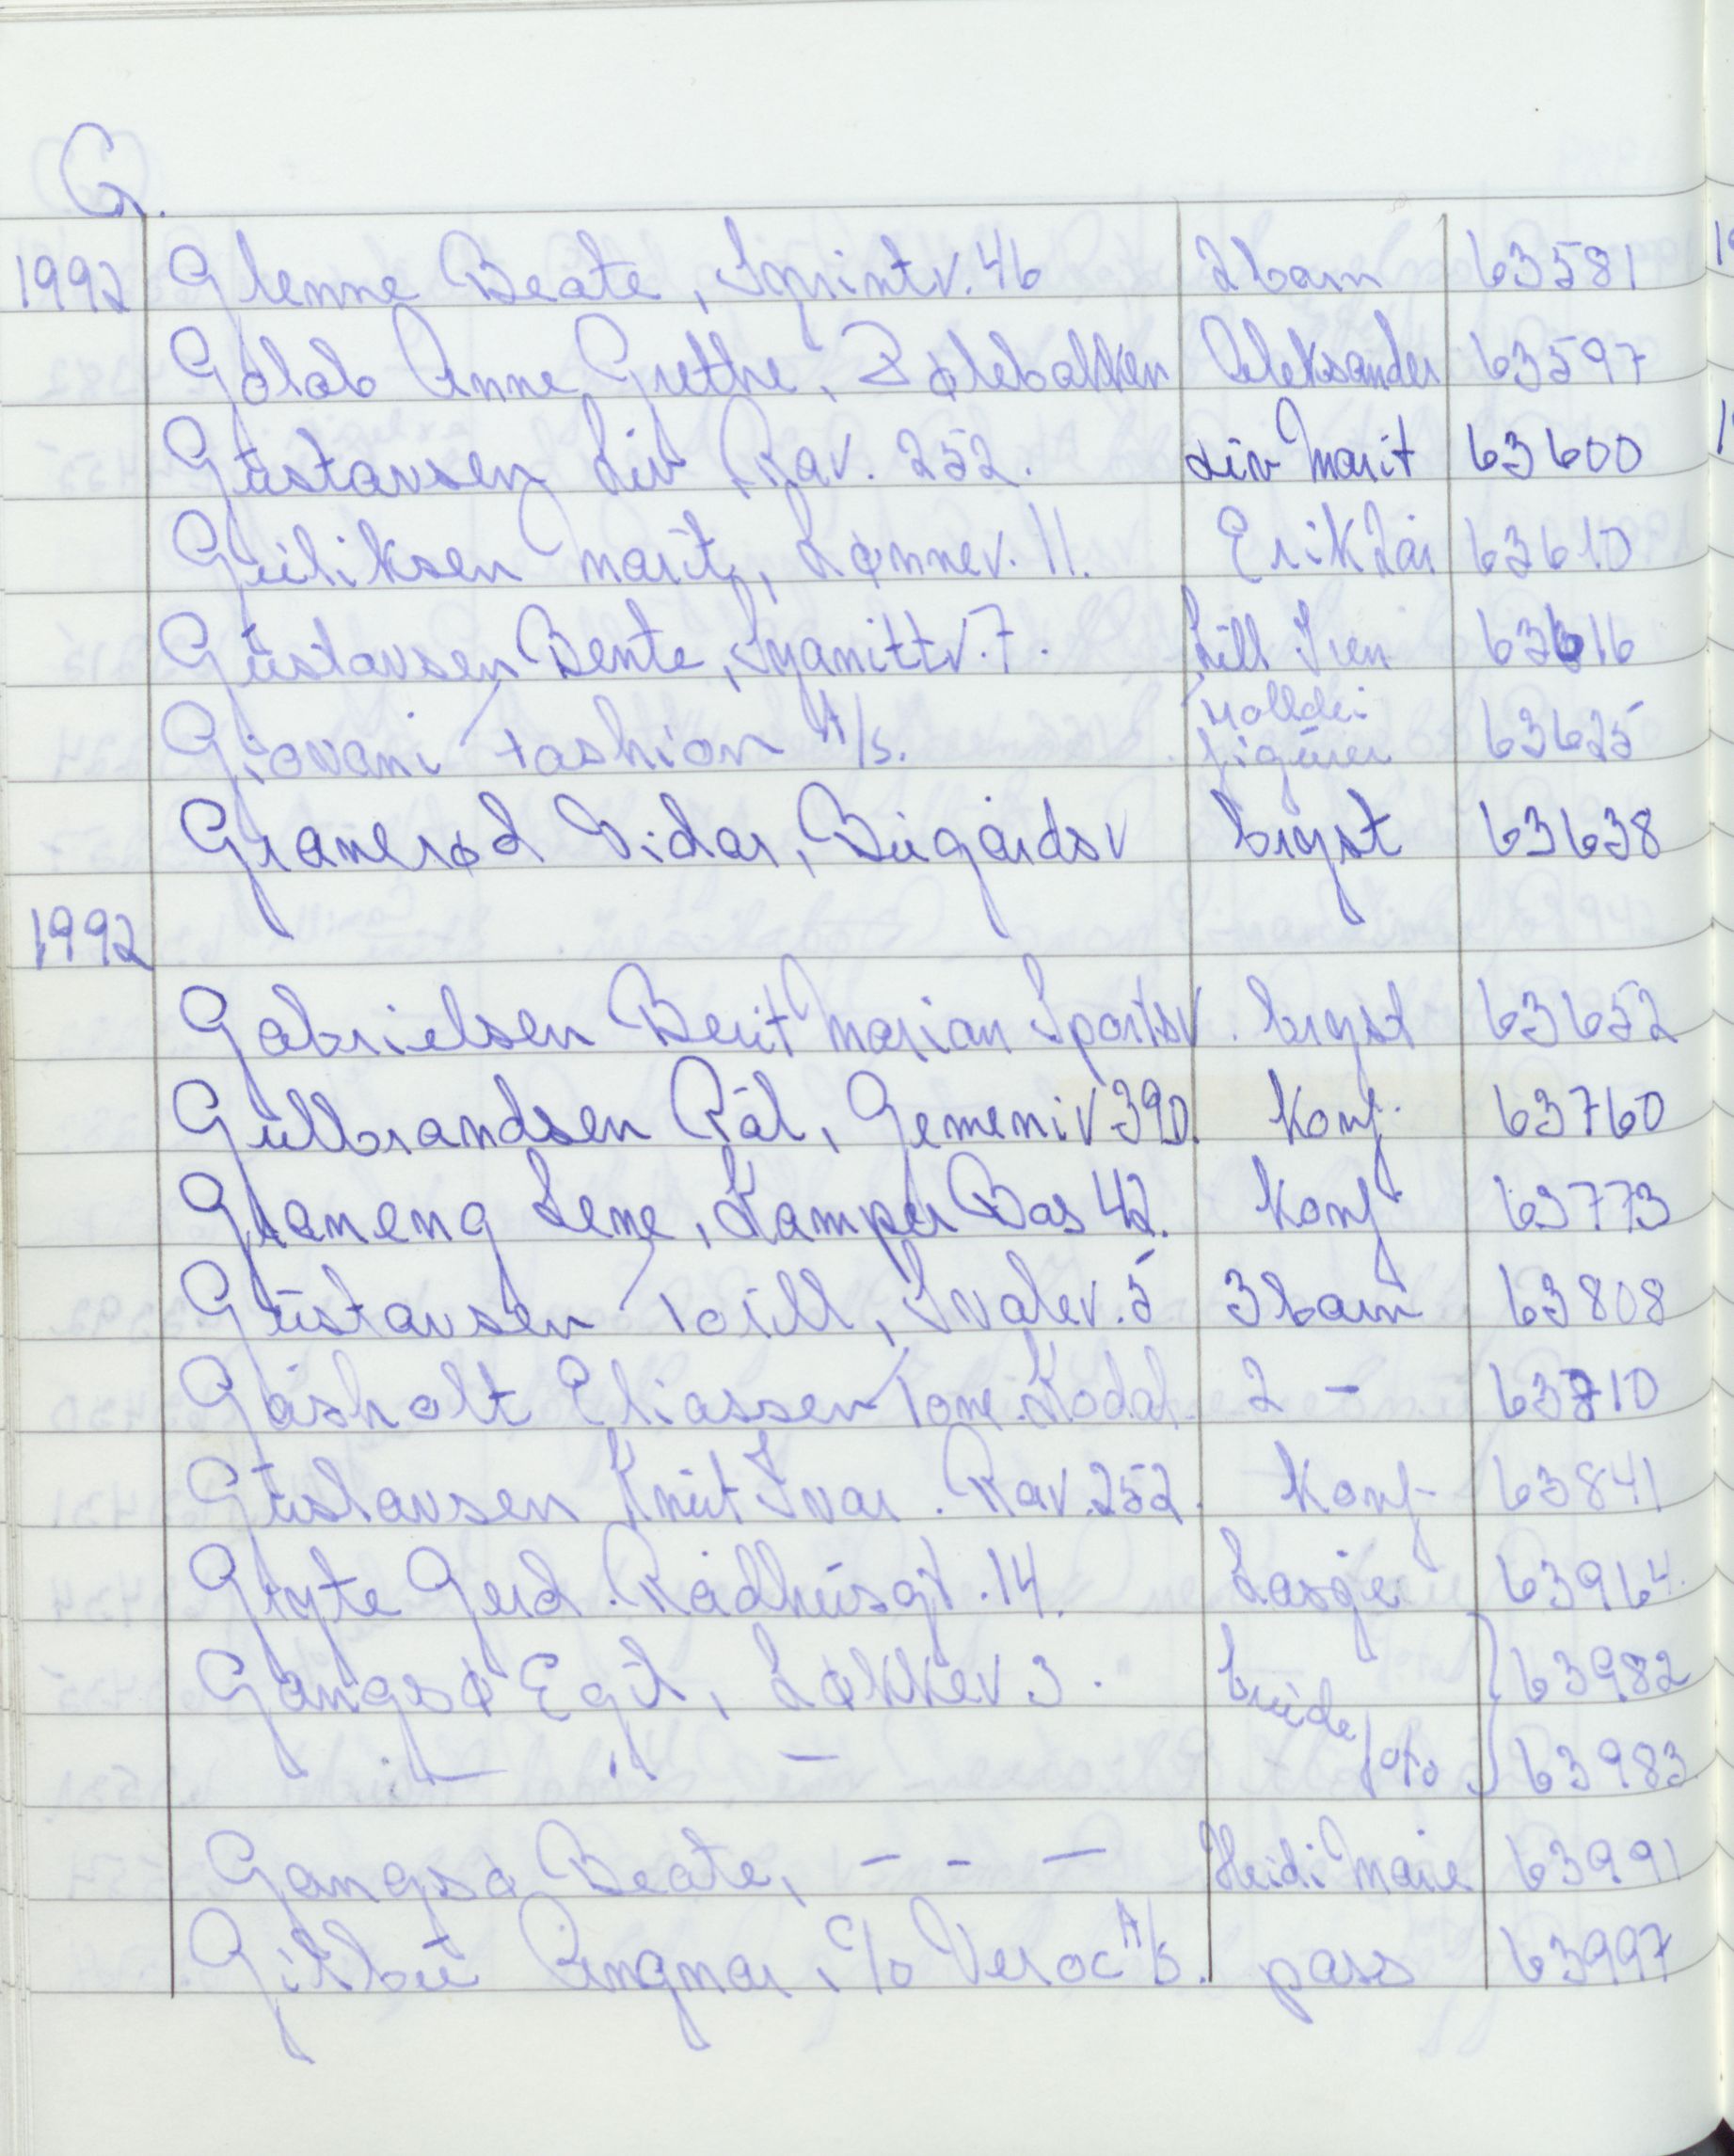 G.
1992 Glenne Beate, Sprintv. 46 2barn 63581
Golab Anne Grethe, Bølebakken Aleksander 63597
Gustavsen Liv Rav. 252. Liv Marit 63600
Guliksen Marit, Lønnev. 11. Erik Kai 63610
Gustavsen Bente, Syanittv. 7. Lill Iren 63616
Giovani Fashion A/S. figurer 63625
Granerød Vidar, Bugårdsv bryst 63638
1992
Gabrielsen Berit Marian Sportsv. bryst 63652
Gullbrandsen Pål, Gemeniv 39D. Konf. 63760
Graneng Lene, Kamper Bas 42. Konf 63773
Gustavsen Toill, Svalev. 5 3barn 63808
Gåsholt Eliassen Tone. Kodal. 2 - 63810
Gustavsen Knut Ivar. Rav. 252. Konf- 63841
Gryte Gerd. Rådhusgt. 14. Lasge 63964.
Gangsø Egil, Løkkev 3. brude 63982
-"- foto 63983
Gangsø Beate, - - - Heidi Marie 63991
Gikbu Ingmar, c/o Veroc A/S. pass 63997